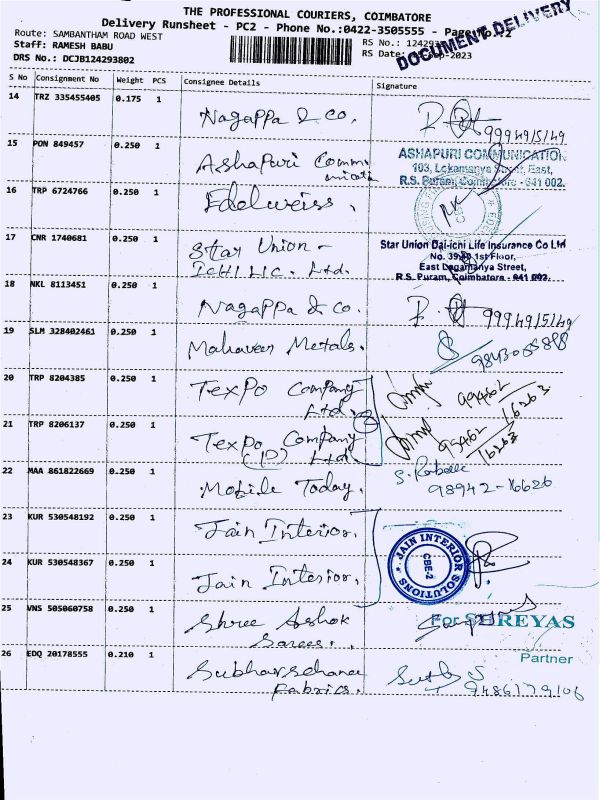 THE PROFESSIONAL COURIERS, COIMBATORE
Delivery Runsheet - PC2 - Phone No.:0422-3505555 - Page No.
Route: SAMBANTHAM ROAD WEST
Staff: RAMESH BABU
DRS No.: DCJB124293802
RS No.: 
RS Date: -2023
DOCUMENT DELIVERY
S No Consignment No Weight PCS Consignee Details Signature
14 TRZ 335455405 0.175 1 Nagappa & co.
9994915149
15 PON 849457 0.250 1 Ashapuri Commu
nicati
ASHAPURI COMMUNICATION
103, Lokamanya Street, East,
R.S. Puram, Coimbatore - 641 002.
16 TRP 6724766 0.250 1 Edelweiss.
17 CNR 1740681 0.250 1 Star Union -
LIC. Ltd.
Star Union Dai-ichi Life Insurance Co Ltd
No. 39/40 1st Floor,
East Logamanya Street,
R.S. Puram, Coimbatore - 641 002.
18 NKL 8113451 0.250 1 Nagappa & co.
9994915149
19 SLM 328402461 0.250 1 Mahaveer Metals.
20 TRP 8204385 0.250 1 Texpo Company
Ltd.
99462
16263
2
21 TRP 8206137 0.250 1 Texpo Company
(P) Ltd
99462
16263
22 MAA 861822669 0.250 1 Mobile Today.
98942-16626
23 KUR 530548192 0.250 1 Jain Interior.
JAIN INTERIOR SOLUTIONS
CBE-2
24 KUR 530548367 0.250 1 Jain Interior.
25 VNS 505060758 0.250 1 Shree Ashok
Sarees.
For SHREYAS
Partner
26 EDQ 20178555 0.210 1 Subharsehana
Fabrics.
9486179106